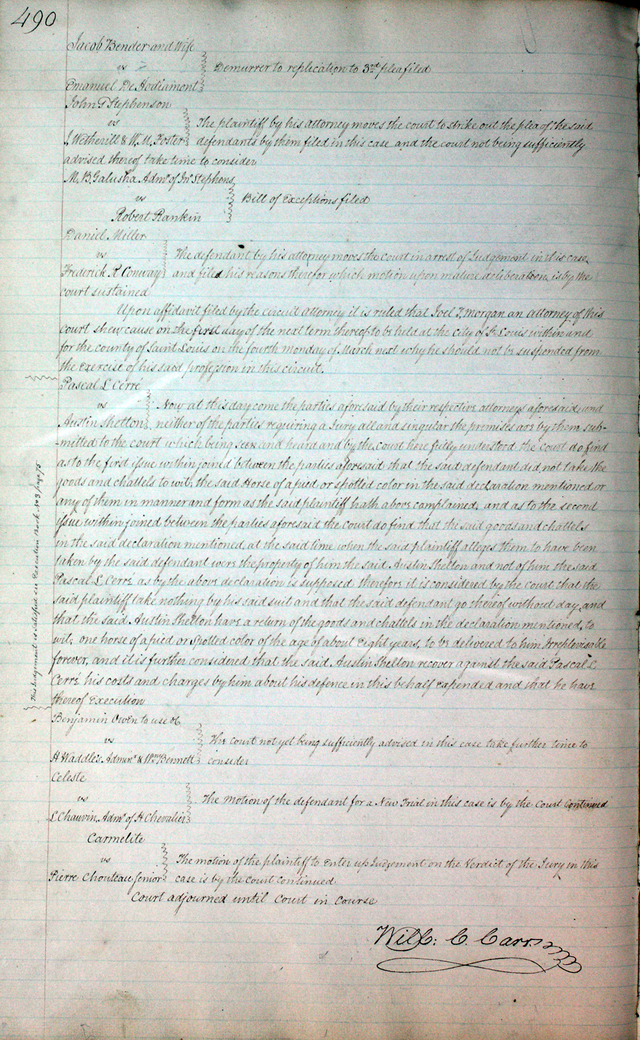 490
Jacob Bender and Wife
vs
Demurrer to replication to 3rd plea filed
Emanuel De Hodiamont
John T Stephenson
vs
The plaintiff by his attorney moves the court to strike out the plea of the said
J Wetherill & W. M. Foster
defendants by them filed in this case and the court not being sufficiently
advised thereof take time to consider
M. B. Galusha Admr. of Jno Stephens
vs
Bill of Exceptions filed
Robert Rankin
Daniel Miller
vs
The defendant by his attorney moves the court in arrest of Judgement in this case
Frederick R Conway
and filed his reasons therefor which motion upon mature deliberation, is by the
court sustained
Upon affidavit filed by the circuit attorney it is ruled that Joel T. Morgan an attorney of this
court shew cause on the first day of the next term thereof to be held at the City of St Louis within and
for the county of Saint Louis on the fourth monday of March next why he should not be suspended from
the exercise of his said profession in this circuit.
Pascal L Cerré
vs
Now at this day come the parties aforesaid by their respective attorneys aforesaid, and
Austin Shelton
neither of the parties requiring a Jury all and singular the premises are by them sub-
mitted to the court which being seen and heard and by the court here fully understood the court do find
as to the first issue within joined between the parties aforesaid that the said defendant did not take the
goods and chattels to wit, the said Horse of a pied or spotted color in the said declaration mentioned or
any of them in manner and form as the said plaintiff hath above complained, and as to the second
issue within joined between the parties aforesaid the court do find that the said goods and chattels
in the said declaration mentioned, at the said time when the said plaintiff alleges them to have been
taken by the said defendant were the property of him the said Austin Shelton and not of him the said
Pascal L Cerré as by the above declaration is supposed, therefore it is considered by the court that the
said plaintiff take nothing by his said suit and that the said defendant go thereof without day, and
that the said Austin Shelton have a return of the goods and chattels in the declaration mentioned, to
wit, one horse of a pied or spotted color of the age of about Eight years, to be delivered to him Irreplevisable
forever, and it is further considered that the said Austin Shelton recover against the said Pascal L
Cerré his costs and charges by him about his defence in this behalf expended and that he have
thereof Execution
This Judgement is satisfied see Execution Book No 3 page 75
Benjamin Owen to use of
vs
The court not yet being sufficiently advised in this case take further time to
H Waddle's Admr. & Wm Bennett
consider
Celeste
vs
The motion of the defendant for a New Trial in this case is by the Court Continued
L Chauvin Admr of H Chevalier
Carmelite
vs
The motion of the plaintiff to Enter up Judgement on the Verdict of the Jury in this
Pierre Chouteau Senior
case is by the court continued
Court adjourned until Court in Course
Will: C. Carr